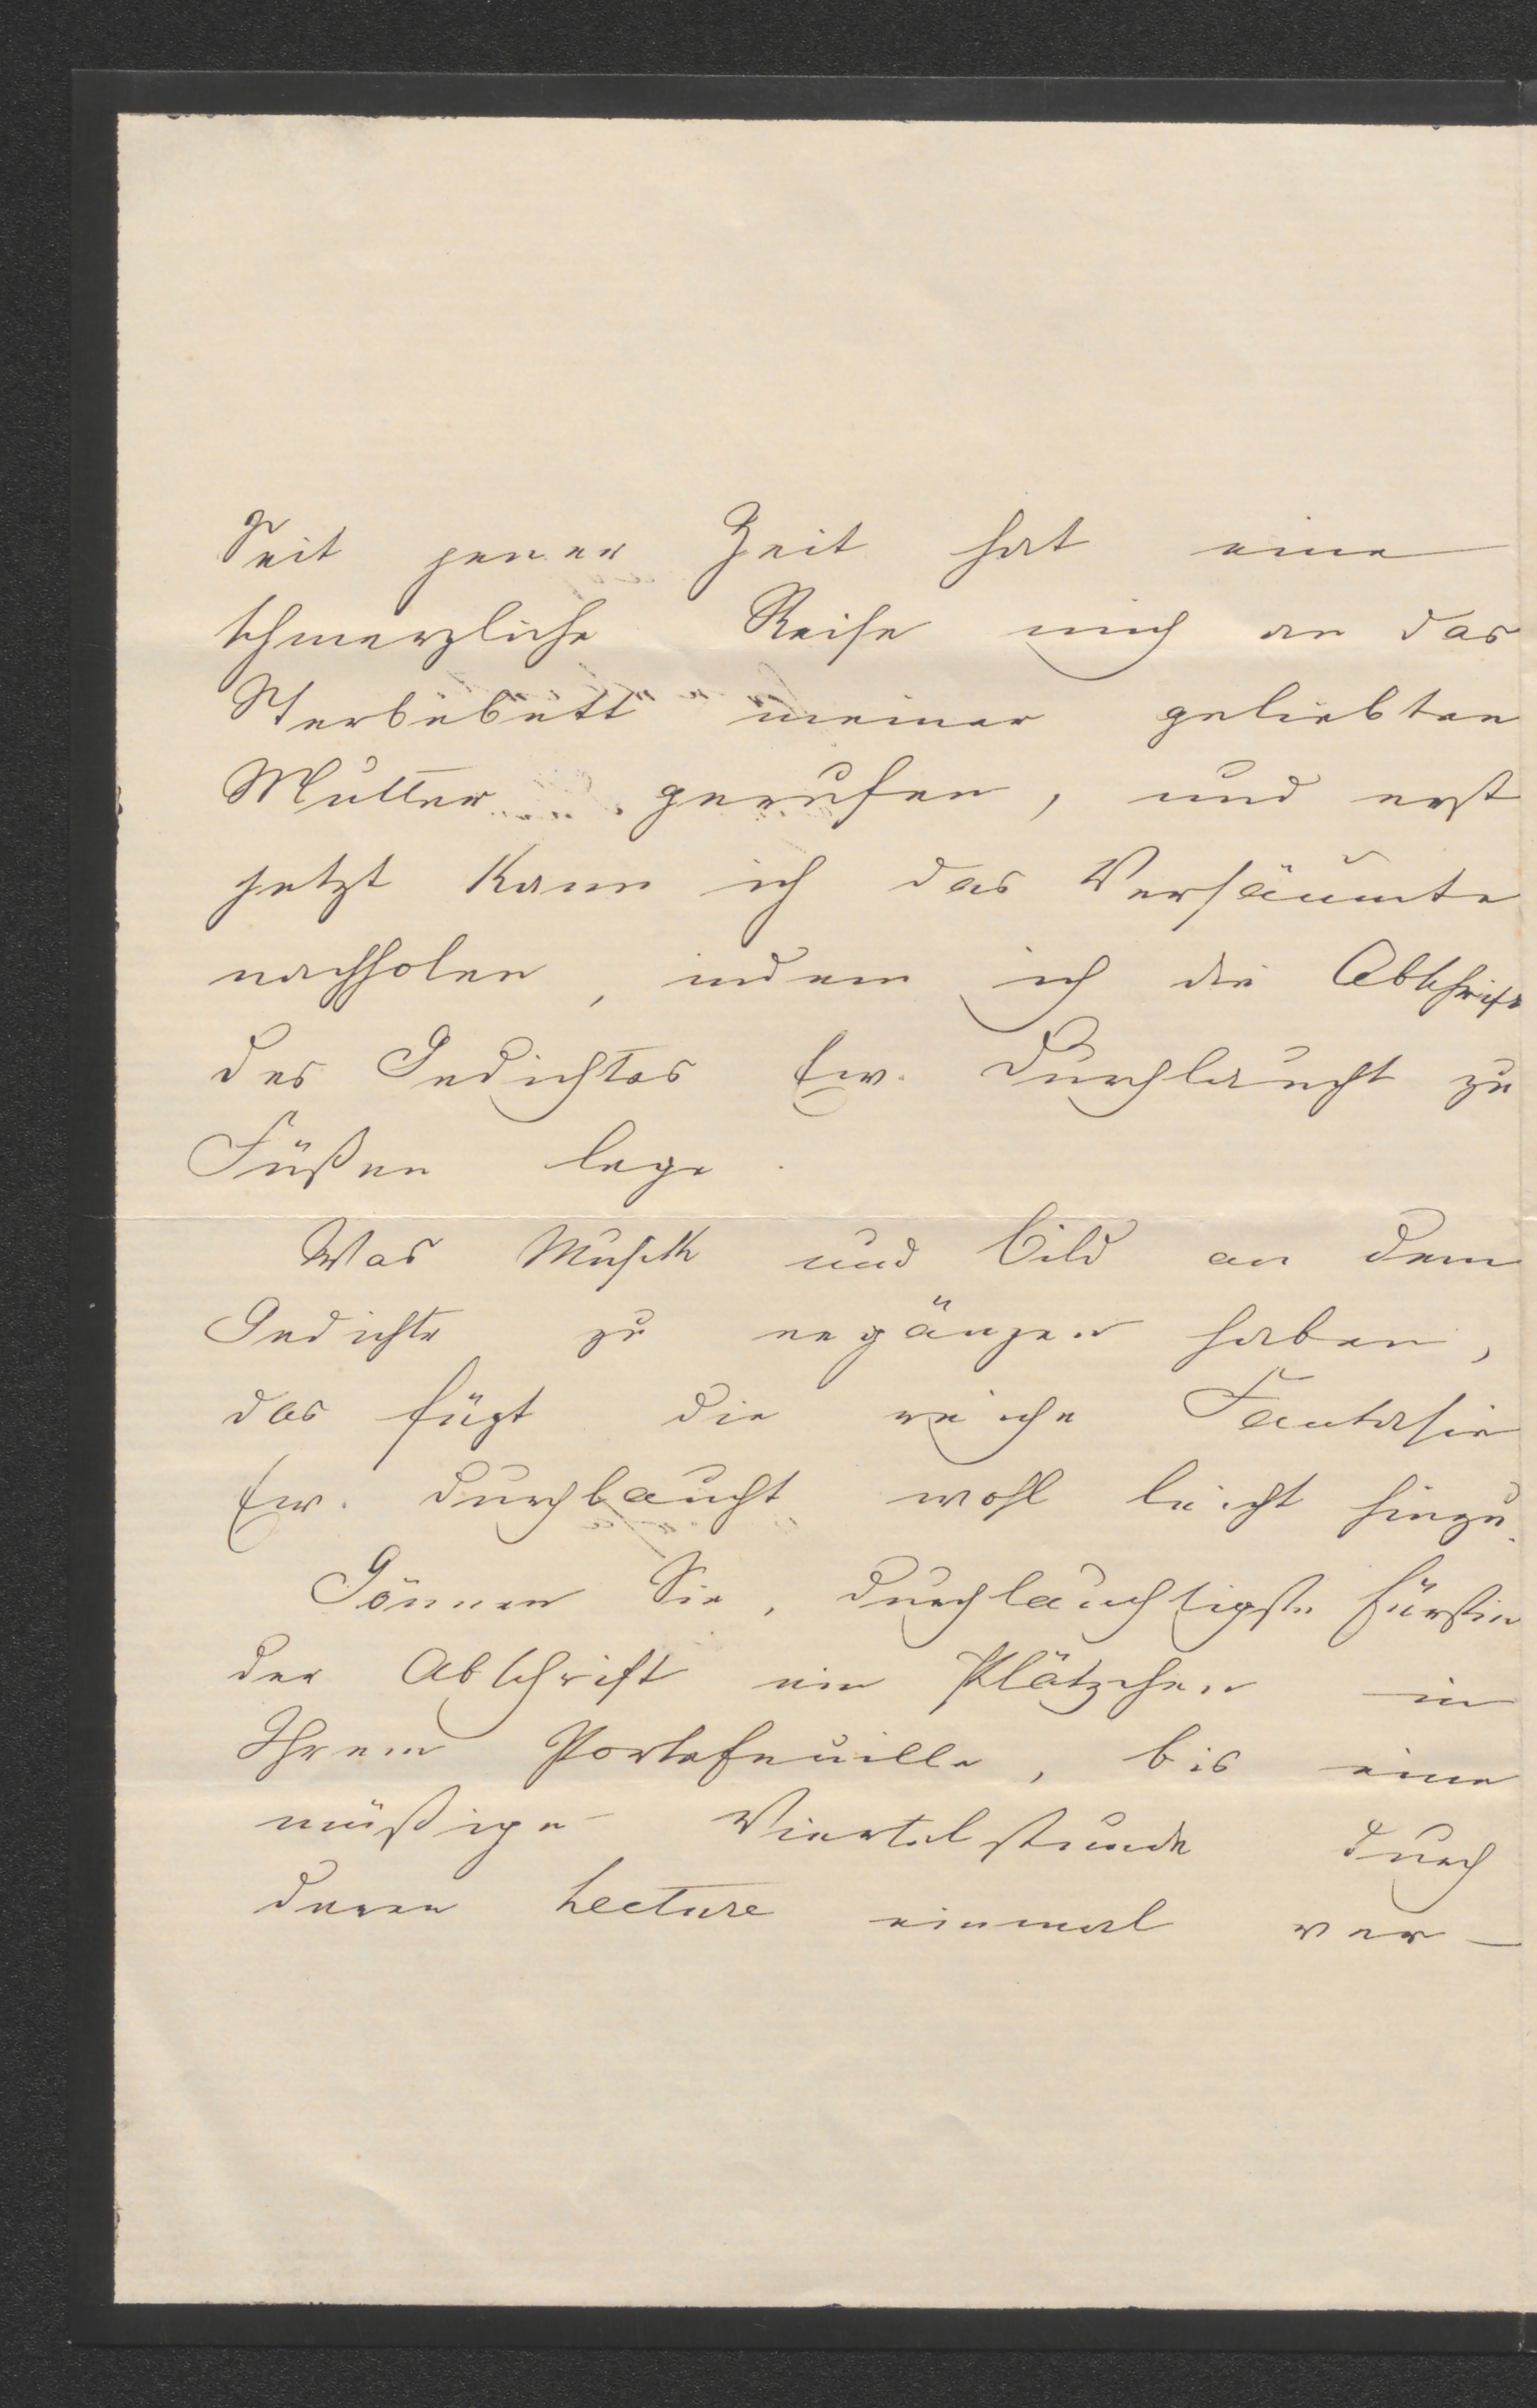 Seit jener Zeit hat eine
schmerzliche Reise mich an das
Sterbebett meiner geliebten
Mutter gerufen, und erst
jetzt kann ich das Versäumte
nachholen, indem ich die Abschrift
des Gedichtes Ew. Durchlaucht zu
Füßen lege.
Was Musik und Bild an dem
Gedichte zu ergänzen haben,
das fügt die reiche Fantasie
Ew. Durchlaucht wohl leicht hinzu.
Gönnen Sie, durchlauchtigste Fürstin
der Abschrift ein Plätzchen in
Ihrem Portefeuille, bis eine
müßige Viertelstunde durch
deren Lecture einmal ver-